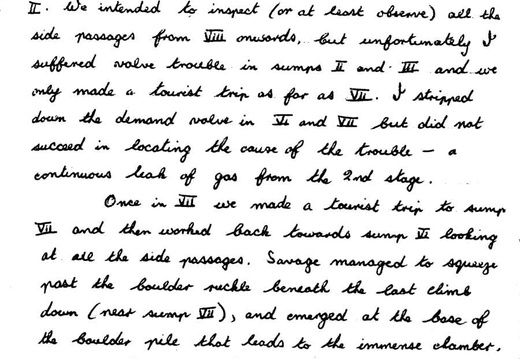 II. We intended to inspect (or at least observe) all the
side passages from VIII onwards, but unfortunately I
suffered valve trouble in sumps II and III and we
only made a tourist trip as far as VII. I stripped
down the demand valve in VI and VII but did not
succeed in locating the cause of the trouble – a
continuous leak of gas from the 2nd stage.
Once in VII we made a tourist trip to sump
VII and then worked back towards sump VI looking
at all the side passages. Savage managed to squeeze
past the boulder ruckle beneath the last climb
down (near sump VII), and emerged at the base of
the boulder pile that leads to the immense chamber.